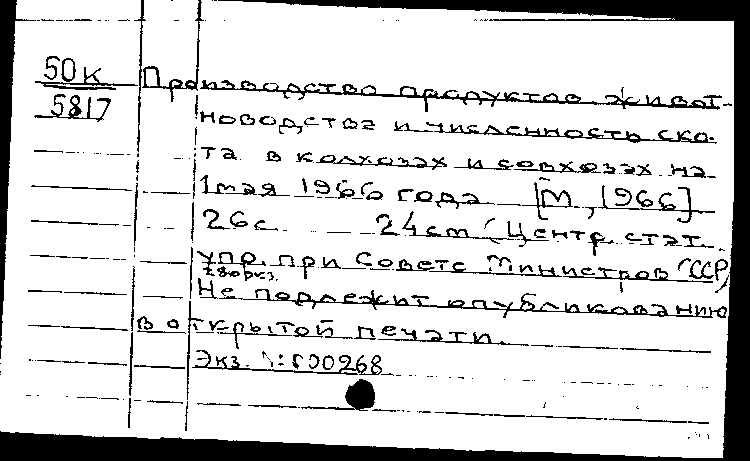 50к
5817
Производство продуктов живот-
новодства и численность ско-
та в колхозах и совхозах на
1 мая 1966 года [М., 1966]
26с. 24 см (Центр. стат.
упр. при Совете Министров СССР)
Не подлежит опубликованию
в открытой печати.
Экз. 000268